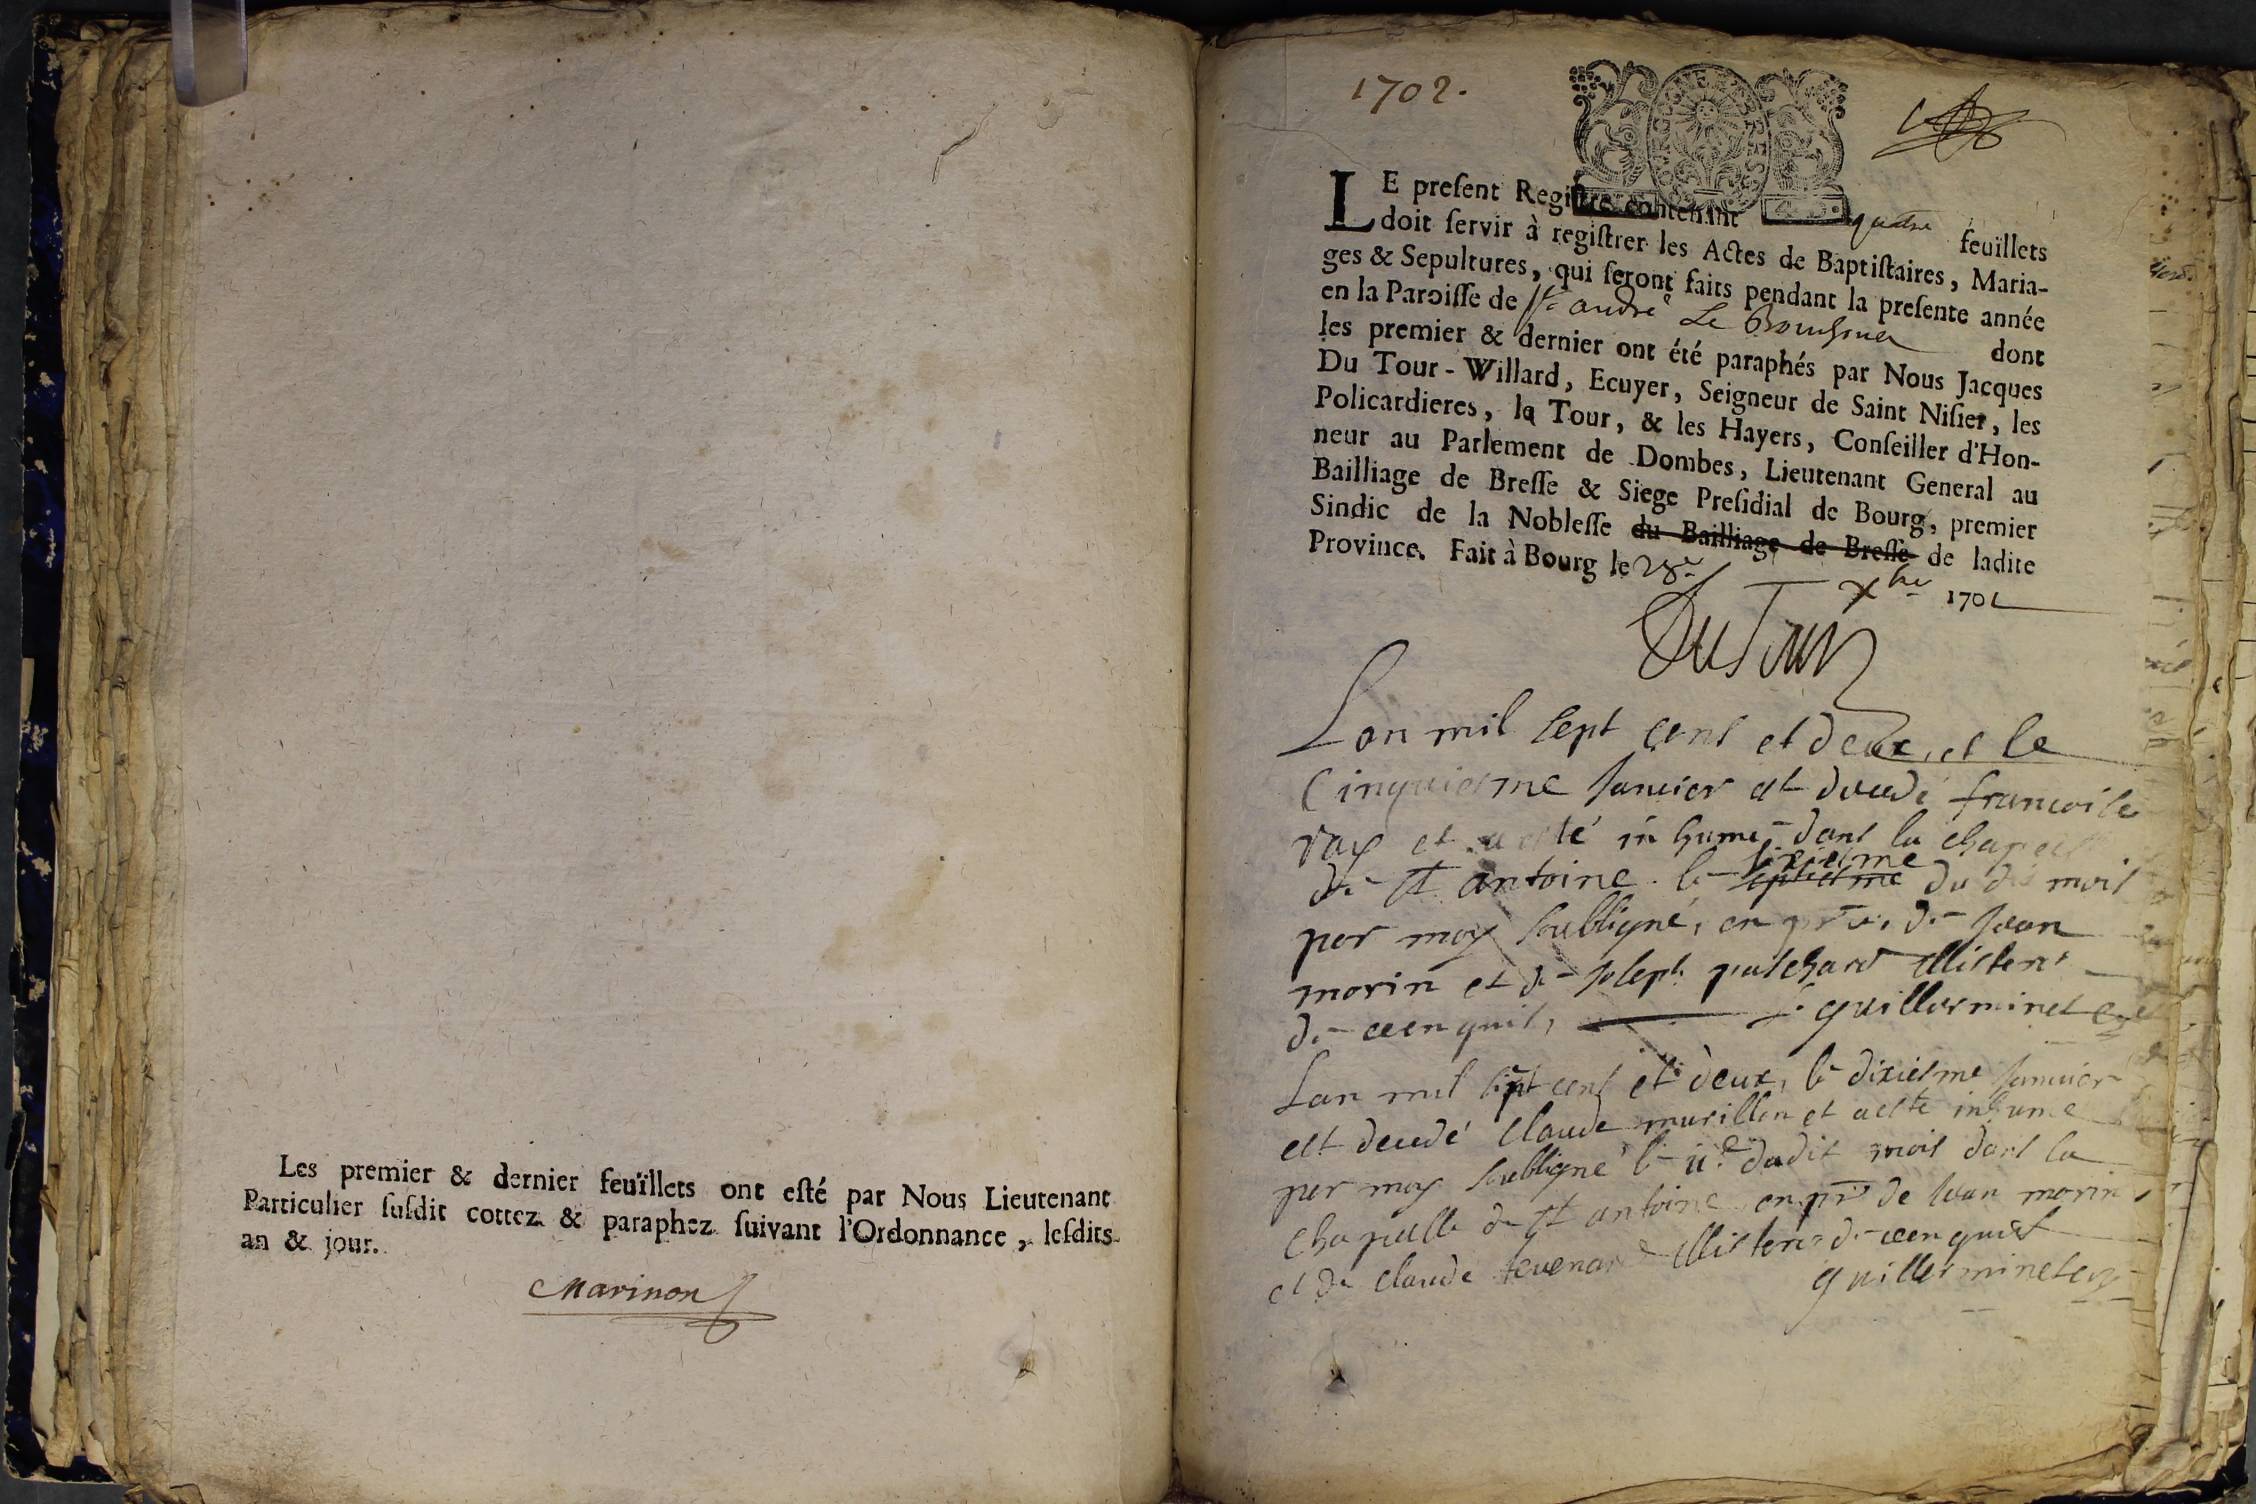 Les premier & dernier feuïllets ont esté par Nous Lieutenant
Particulier susdit cottez & paraphez suivant l'Ordonnance, lesdits
an & jour.
Marinon
1702.
LE present Registre contenant quatre feuïllets
doit servir à registrer les Actes de Baptistaires, Maria-
ges & Sepultures, qui seront faits pendant la presente année
en la Paroisse de St andré Le Bouchoux dont
les premier & dernier ont été paraphés par Nous Jacques
Du Tour-Willard, Ecuyer, Seigneur de Saint Nisier, les
Policardieres, la Tour, & les Hayers, Conseiller d'Hon-
neur au Parlement de Dombes, Lieutenant General au
Bailliage de Bresse & Siege Presidial de Bourg, premier
Sindic de la Noblesse du Bailliage de Bresse de ladite
Province. Fait à Bourg le 28e xbre 1701
DuTour
Lan mil sept cens et deux, et le
Cinquiesme Janvier est decedé francoise
ray et a esté inhumé dans la chapelle
de St antoine le sixiesme
septiesme du dit mois
par moy soubsigné, en de Jean
morin et de Joseph assistens
de guillerminet
Lan mil sept cens et deux, le dixiesme Janvier
est decedé Claude murillon et a esté inhumé
par moy soubsigné le 11e dudit mois dans la
chapelle de St antoine en de Jean morin,
et de claude tevenard assistens de
guillerminet